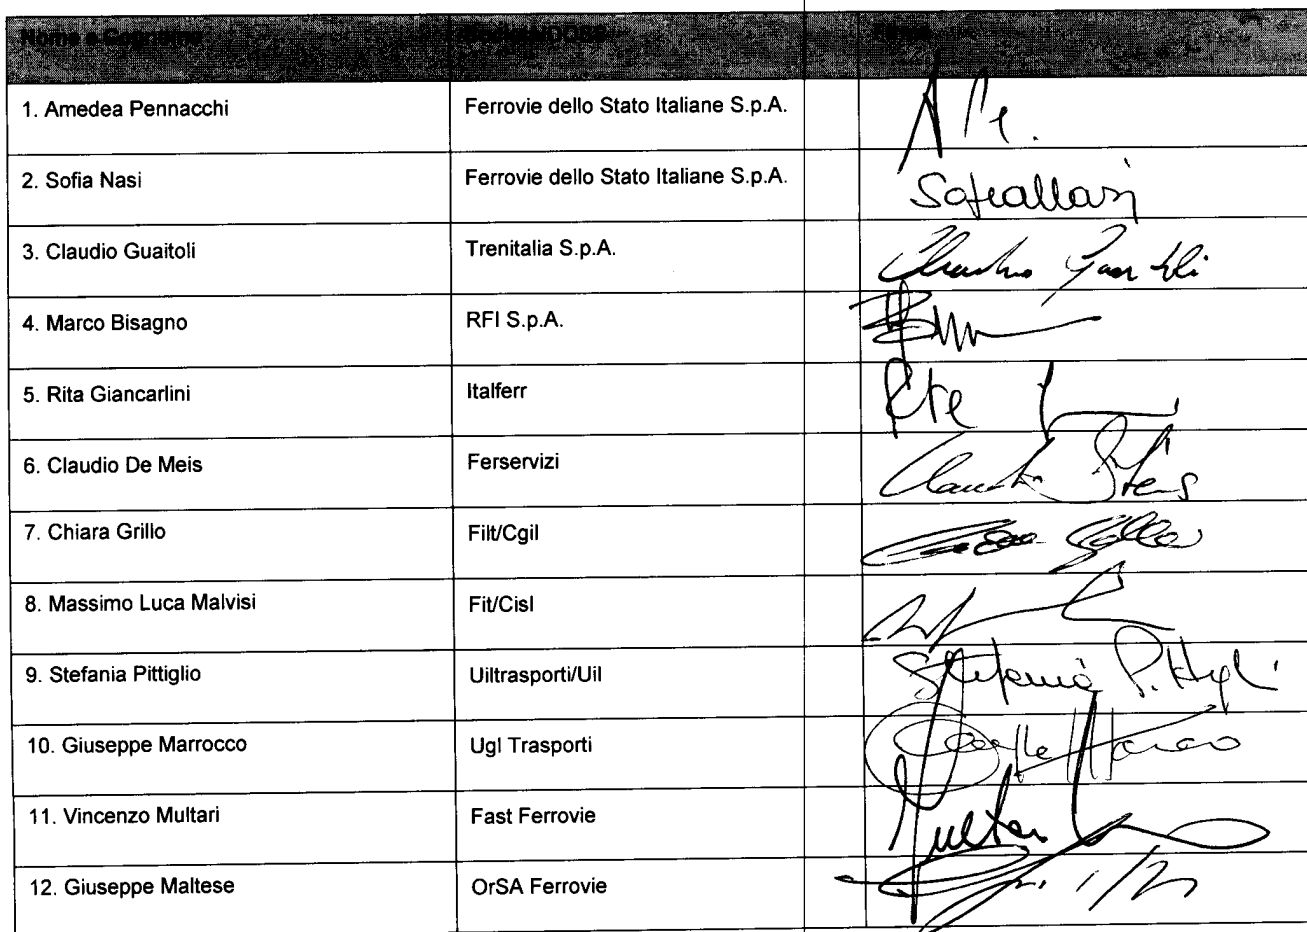 Nome e Cognome
1. Amedea Pennacchi Ferrovie dello Stato Italiane S.p.A.
2. Sofia Nasi Ferrovie dello Stato Italiane S.p.A. Sofia Nasi
3. Claudio Guaitoli Trenitalia S.p.A. Claudio Guaitoli
4. Marco Bisagno RFI S.p.A.
5. Rita Giancarlini Italferr
6. Claudio De Meis Ferservizi
7. Chiara Grillo Filt/Cgil
8. Massimo Luca Malvisi Fit/Cisl
9. Stefania Pittiglio Uiltrasporti/Uil Stefania Pittigli
10. Giuseppe Marrocco Ugl Trasporti
11. Vincenzo Multari Fast Ferrovie
12. Giuseppe Maltese OrSA Ferrovie